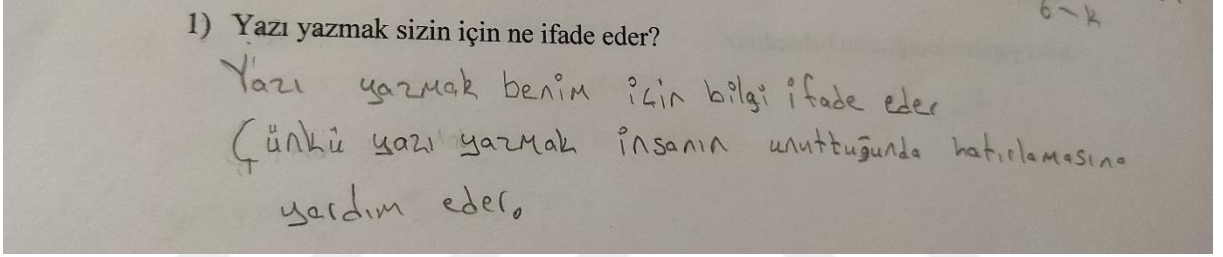 6-k
1) Yazı yazmak sizin için ne ifade eder?
Yazı yazmak benim için bilgi ifade eder
Çünkü yazı yazmak insanın unuttuğunda hatırlamasına
yardım eder.